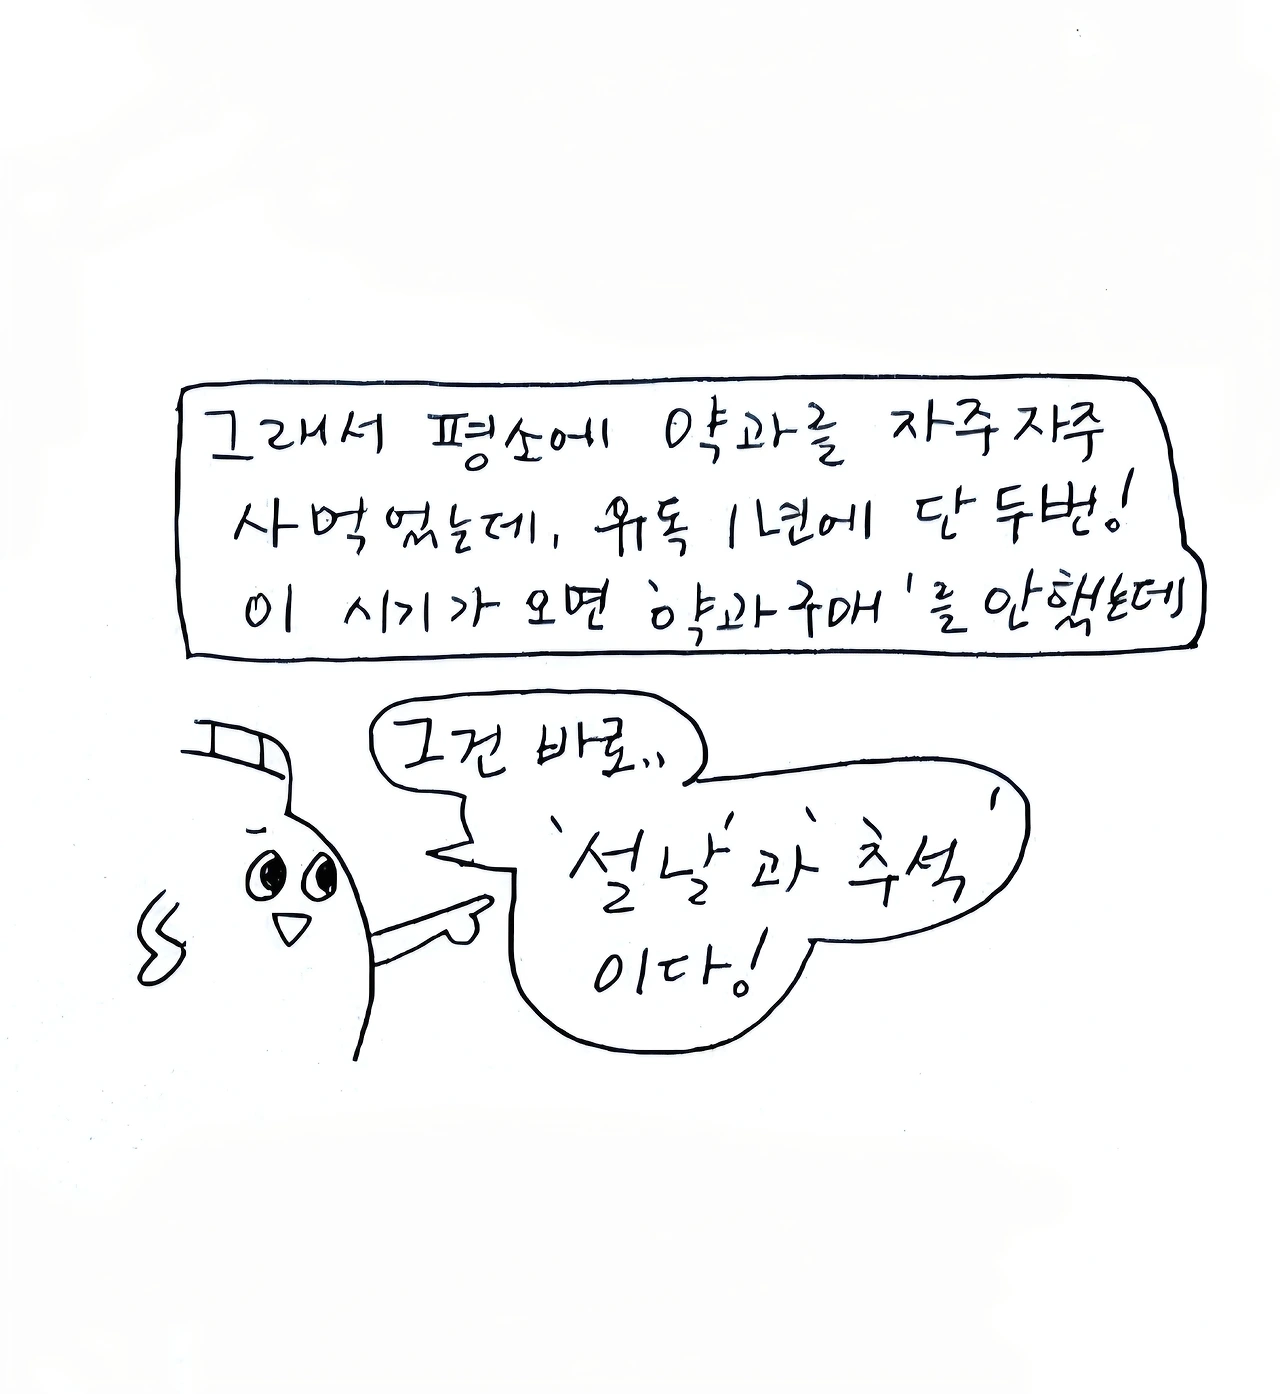 그래서 평소에 약과를 자주자주
사먹었는데, 유독 1년에 단 두번!
이 시기가 오면 '약과구매'를 안했는데
그건 바로..
'설날'과 '추석'
이다!